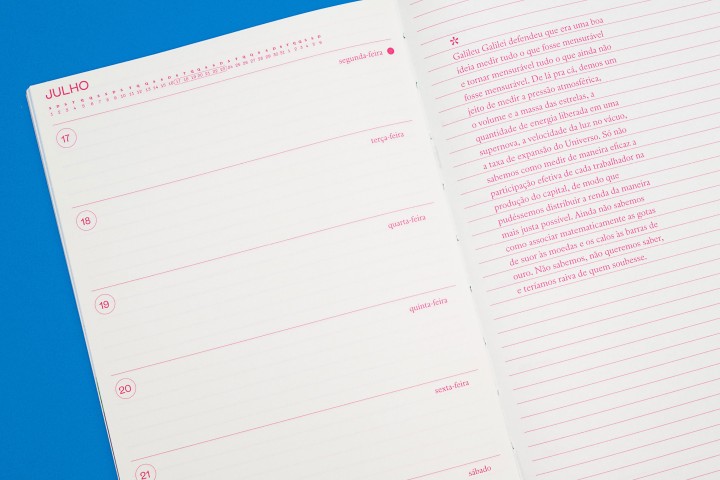 JULHO
segunda-feira
17
terça-feira
18
quarta-feira
19
quinta-feira
20
sexta-feira
21
sábado
*
Galileu Galilei defendeu que era uma boa
ideia medir tudo o que fosse mensurável
e tornar mensurável tudo o que ainda não
fosse mensurável. De lá pra cá, demos um
jeito de medir a pressão atmosférica,
o volume e a massa das estrelas, a
quantidade de energia liberada em uma
supernova, a velocidade da luz no vácuo,
a taxa de expansão do Universo. Só não
sabemos como medir de maneira eficaz a
participação efetiva de cada trabalhador na
produção do capital, de modo que
pudéssemos distribuir a renda da maneira
mais justa possível. Ainda não sabemos
como associar matematicamente as gotas
de suor às moedas e os calos às barras de
ouro. Não sabemos, não queremos saber,
e teríamos raiva de quem soubesse.